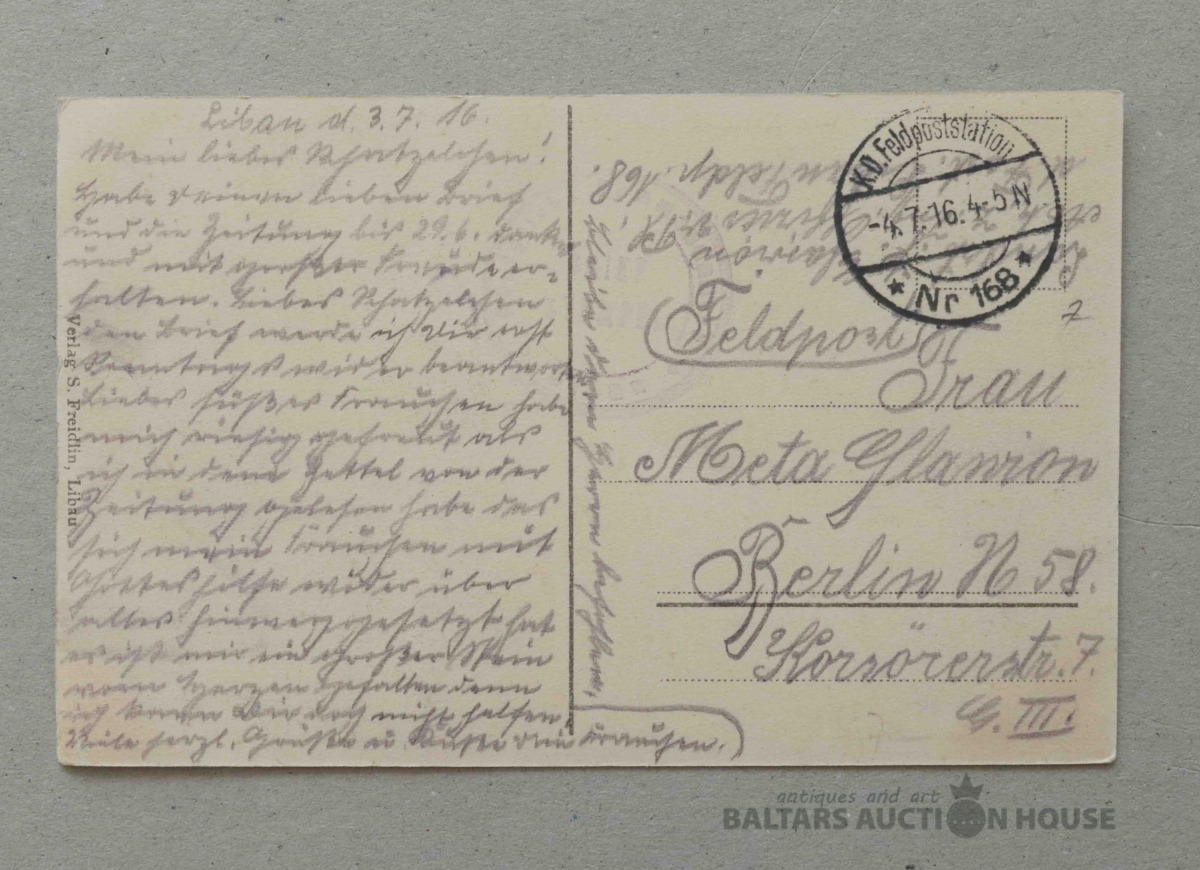 Libau d. 3.7.16.
Mein liebes Schatzelchen!
Habe deinen lieben Brief
und die Zeitung bis 29.6. dankend
und mit großer Freude er-
halten. Liebes Schatzelchen
den Brief werde ich Dir erst
wider beantworten
Liebes süßes Frauchen habe
mich riesig gefreut als
ich in dem Zettel von der
Zeitung gelesen habe das
sich mein Frauchen mit
Gotteshilfe wider über
alles hinweggesetzt hat
es ist mir ein großer Stein
vom Herzen gefallen denn
ich kann Dir doch nicht helfen.
Viele herzl. Grüße u. Küsse mein Frauchen.
Verlag S. Freidlin, Libau
K.D. Feldpoststation
-4.7.16. 4-5 N
* Nr 168 *
Feldp. 168.
Glawion
Feldpost
7
Frau
Meta Glawion
Berlin N 58.
Korsörerstr. 7.
G. III.
antiques and art
BALTARS AUCTION HOUSE